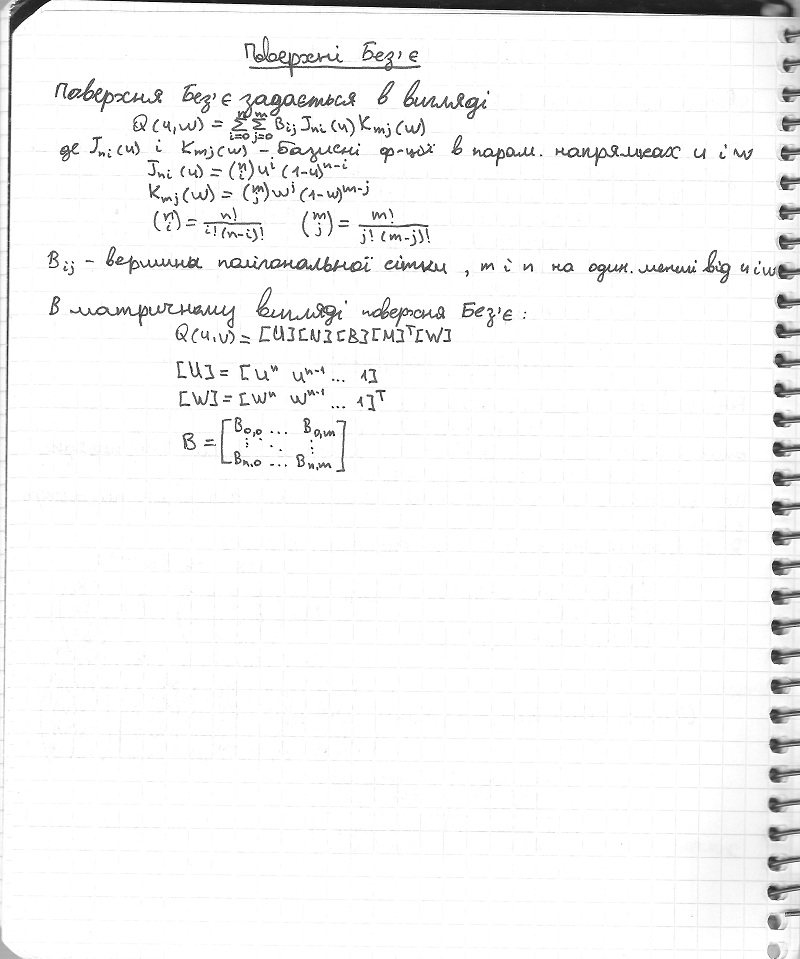 Поверхні Без'є
Поверхня Без'є задається в вигляді
Q(u,w) = \sum_{i=0}^{n} \sum_{j=0}^{m} B_{ij} J_{ni}(u) K_{mj}(w)
де J_{ni}(u) і K_{mj}(w) – базисні ф-ції в парам. напрямках u і w
J_{ni}(u) = \binom{n}{i} u^i (1-u)^{n-i}
K_{mj}(w) = \binom{m}{j} w^j (1-w)^{m-j}
\binom{n}{i} = \frac{n!}{i!(n-i)!} \binom{m}{j} = \frac{m!}{j!(m-j)!}
B_{ij} – вершини полігональної сітки, m і n на один. менші від u і w
В матричному вигляді поверхня Без'є:
Q(u,v) = [U][N][B][M]^T[W]
[U] = [u^n u^{n-1} ... 1]
[W] = [w^n w^{n-1} ... 1]^T
B = \begin{bmatrix} B_{0,0} & ... & B_{0,m} \\ \vdots & \ddots & \vdots \\ B_{n,0} & ... & B_{n,m} \end{bmatrix}